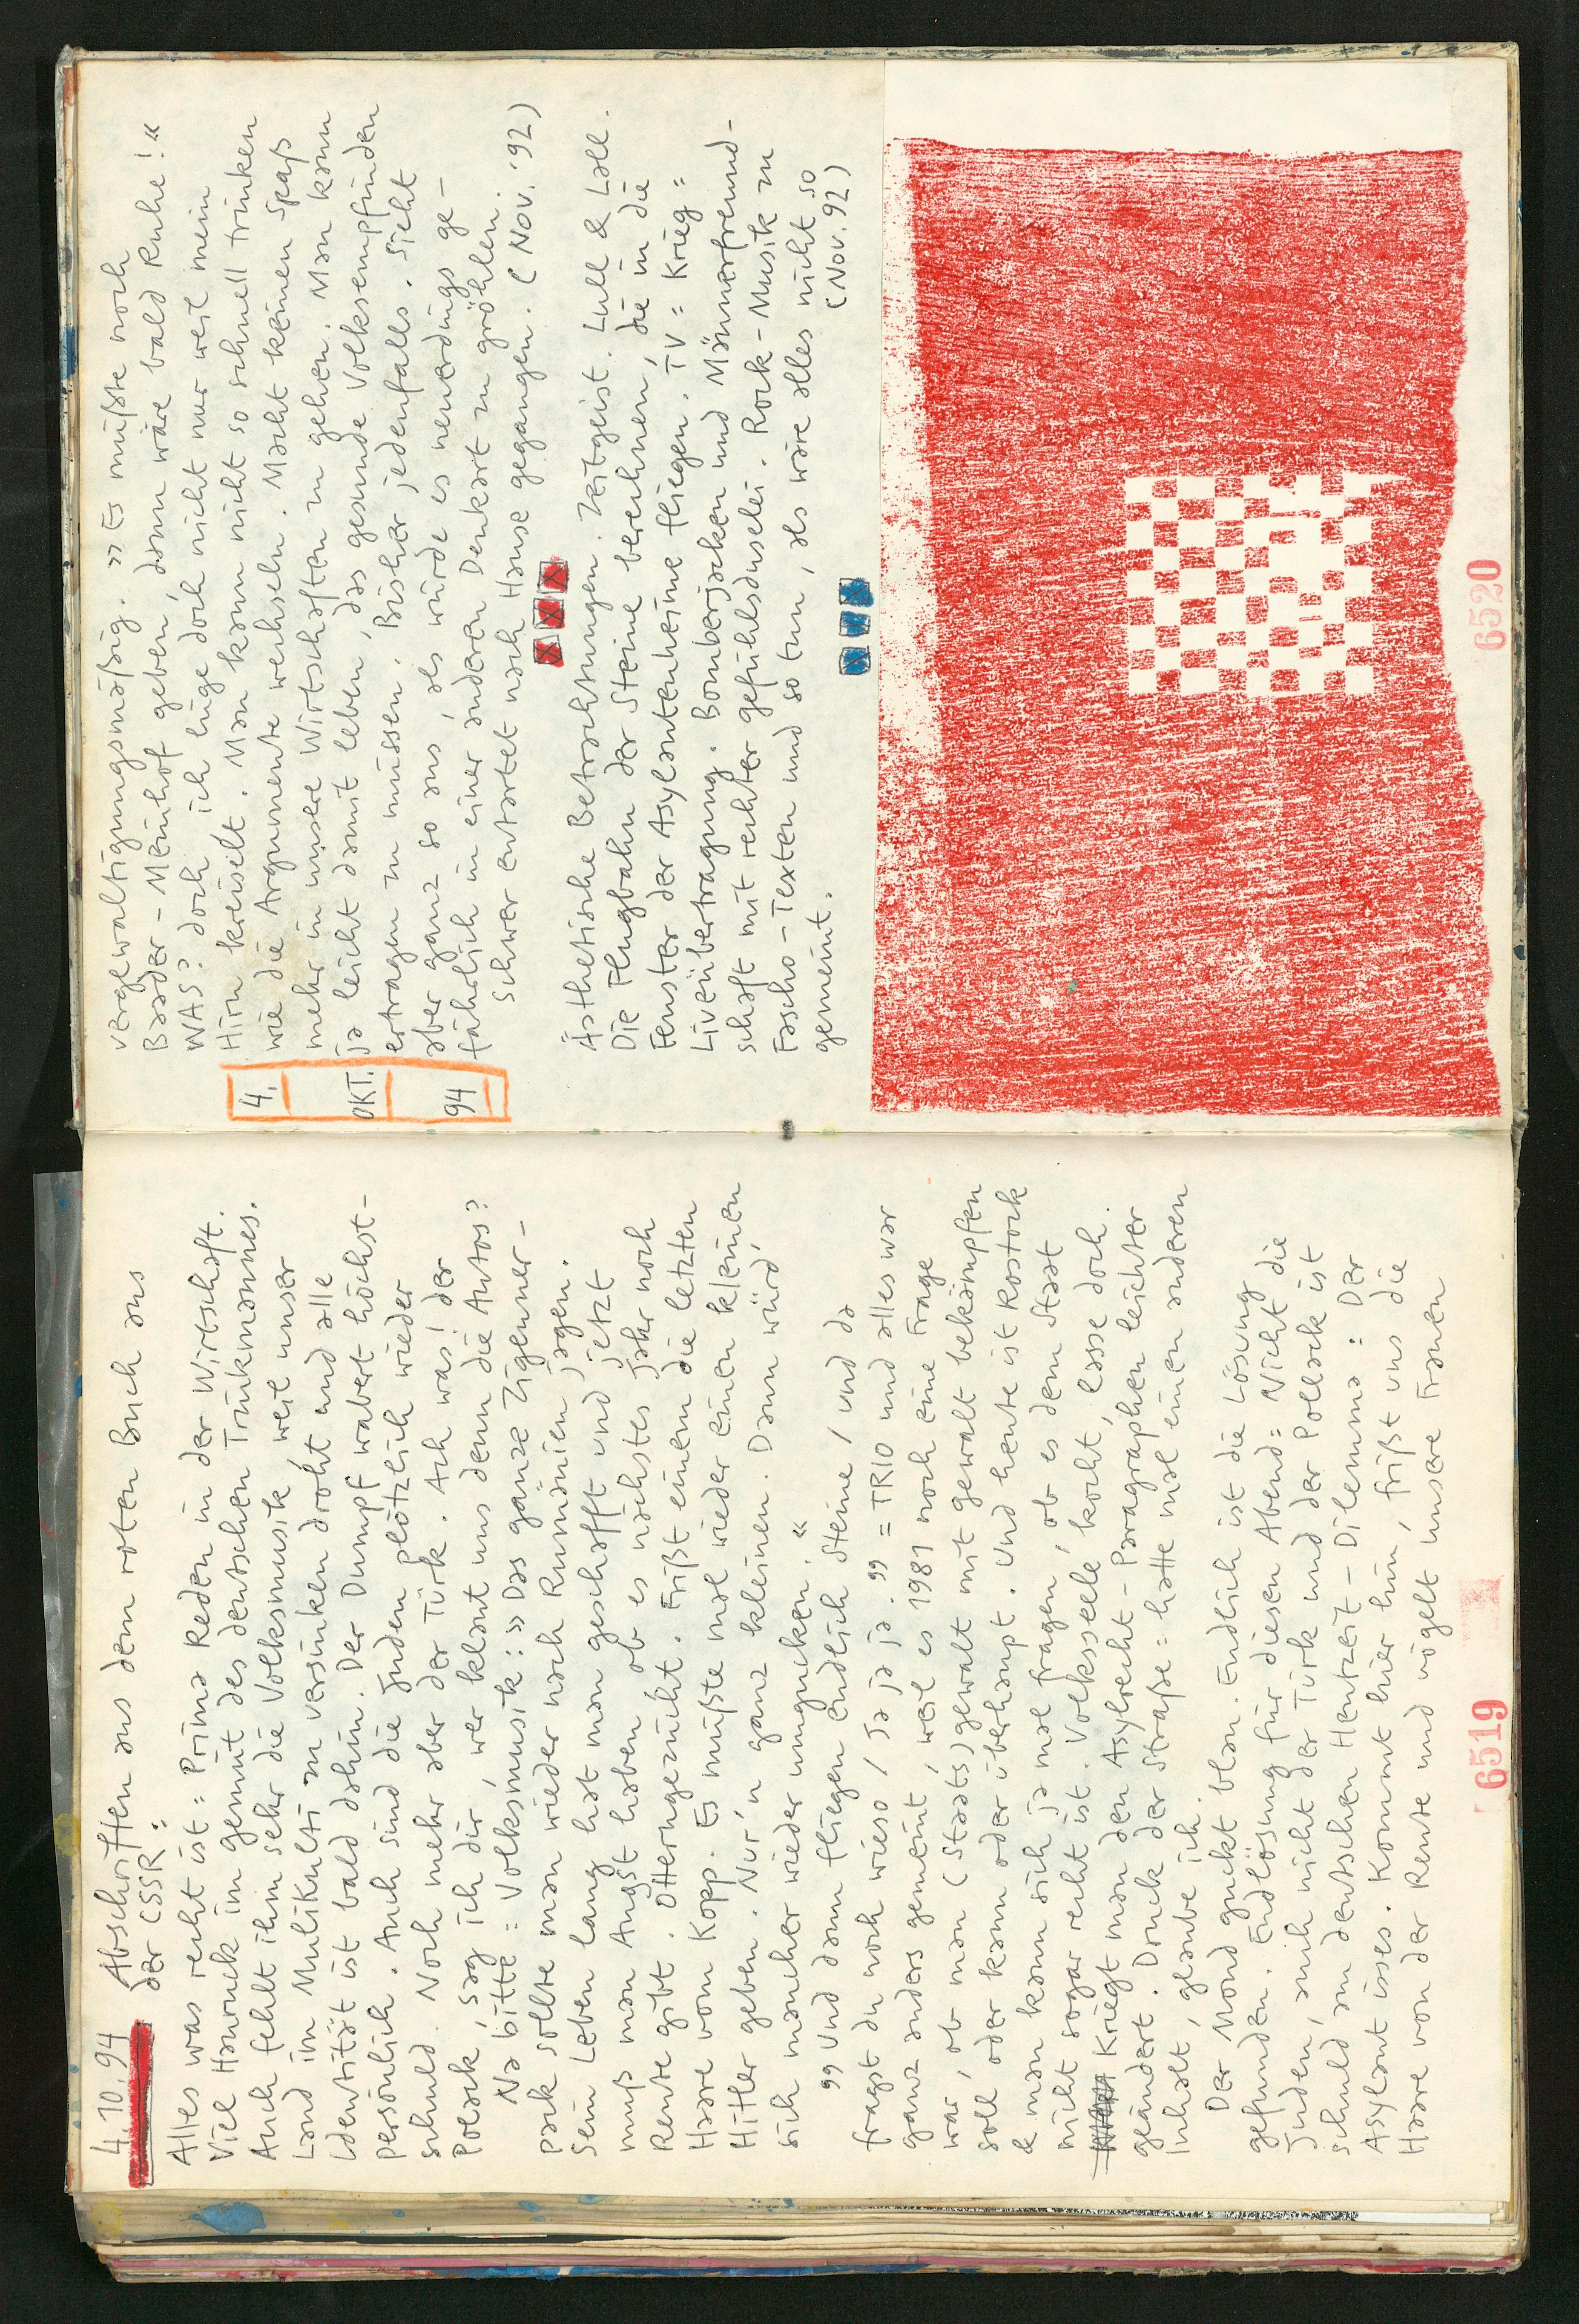 4.10.94 Abschriften aus dem roten Buch aus
der ČSSR:
Alles was recht ist: Prima Reden in der Wirtschaft.
Viel Hauruck im gemüt des deutschen Trinkmannes.
Auch fehlt ihm sehr die Volksmusik, weil unser
Land im Multikulti zu versinken droht und alle
Identität ist bald dahin. Der Dumpf wabert höchst-
persönlich. Auch sind die Juden plötzlich wieder
schuld. Noch mehr aber der Türk. Ach was! der
Polack, sag ich dir, wer klaut uns denn die Autos?
Na bitte: Volksmusik: »Das ganze Zigeuner-
pack sollte man wieder nach Rumänien jagen.
Sein Leben lang hat man geschafft und jetzt
muß man Angst haben ob es nächstes Jahr noch
Rente gibt. Otterngezücht. Frißt einem die letzten
Haare vom Kopp. Es müßte mal wieder einen kleinen
Hitler geben. Nur'n ganz kleinen. Dann würd'
sich mancher wieder umgucken.«
"Und dann fliegen endlich Steine / und da
fragst du noch wieso / Ja ja ja ja." = TRIO und alles war
ganz anders gemeint, weil es 1981 noch eine Frage
war, ob man (Staats)gewalt mit gewalt bekämpfen
soll oder kann oder überhaupt. Und heute ist Rostock
& man kann sich ja mal fragen, ob es dem Staat
nicht sogar recht ist. Volksseele, kocht, lasse doch.
Kriegt man den Asylrecht-Paragraphen leichter
geändert. Druck der Straße: hatte mal einen anderen
Inhalt, glaube ich.
Der Mond guckt blau. Endlich ist die Lösung
gefunden. Endlösung für diesen Abend: Nicht die
Juden, auch nicht der Türk und der Pollack ist
schuld am deutschen Heutzeit-Dilemma: Der
Asylant isses. Kommt hier hin, frißt uns die
Haare von der Rente und vögelt unsere Frauen
6519
vergewaltigungsmäßig. »Es müßte noch
Baader-Meinhof geben, dann wäre bald Ruhe!«
WAS? doch ich lüge doch nicht nur weil mein
Hirn kreiselt. Man kann nicht so schnell trinken
wie die Argumente wechseln. Macht keinen Spaß
mehr in unsere Wirtschaften zu gehen. Man kann
ja leicht damit leben, das gesunde Volksempfinden
ertragen zu müssen. Bisher jedenfalls. Sieht
aber ganz so aus, als würde es neuerdings ge-
fährlich in einer anderen Denkart zu gröhlen.
Schwer entartet nach Hause gegangen. (Nov. '92)
4.
OKT.
94
Ästhetische Betrachtungen. Zeitgeist. Lull & Lall.
Die Flugbahn der Steine berechnen, die in die
Fenster der Asylantenheime fliegen. TV = Krieg =
Liveübertragung. Bomberjacken und Männerfreund-
schaft mit rechter gefühlsduselei. Rock-Musik zu
Fascho-Texten und so tun, als wäre alles nicht so
gemeint. (Nov. 92)
6520